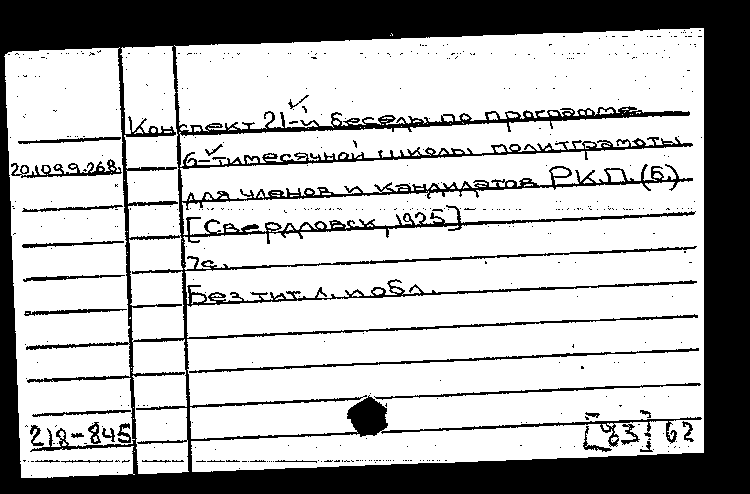 Конспект 21-й беседы по программе
20.109.9.268.
6-тимесячной школы политграмоты
для членов и кандидатов РК.П.(б.)
[Свердловск, 1925]
7с.
Без тит. л. и обл.
218-845
[83] 62